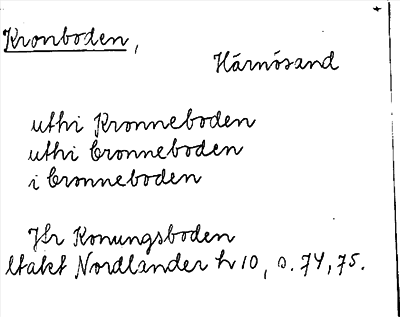 Kronboden,
Härnösand
uthi Kronneboden
uthi Cronneboden
i Cronneboden
Jfr Konungsboden
Itakt Nordlander h 10, s. 74, 75.